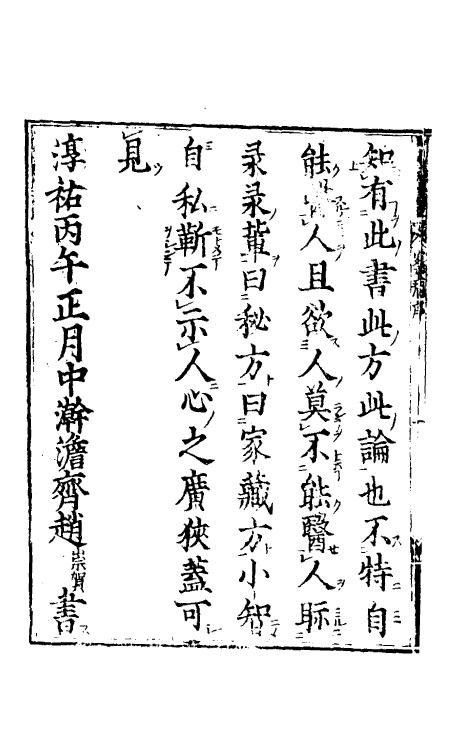 知有此書此方此論也不特自
能醫人且欲人莫不能醫人眎
彔彔輩曰秘方曰家藏方小智
自私靳不示人心之廣狹蓋可
見
淳祐丙午正月中澣澹齊趙崇賀書